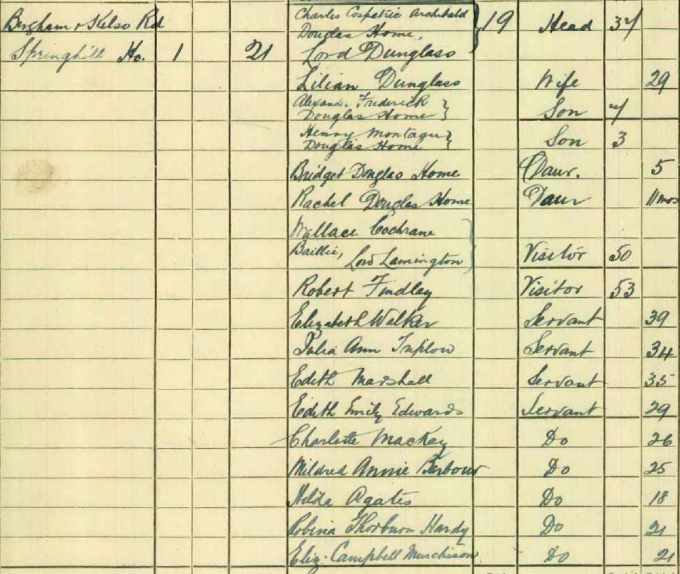 Birgham & Kelso Rd Charles Cospatric Archibald
Douglas Home, 19 Head 37
Springhill Ho. 1 21 Lord Dunglass
Lilian Dunglass Wife 29
Alexand. Frederick
Douglas Home Son 7
Henry Montagu
Douglas Home Son 3
Bridget Douglas Home Daur. 5
Rachel Douglas Home Daur 11 mos
Wallace Cochrane
Baillie, Lord Lamington Visitor 50
Robert Findlay Visitor 53
Elizabeth Walker Servant 39
Julia Ann Servant 34
Edith Marshall Servant 35
Edith Emily Edwards Servant 29
Charlotte Mackay Do 26
Mildred Annie Barbour Do 25
Hilda Agates Do 18
Robina Thorburn Hardy Do 21
Eliz. Campbell Murchison Do 21